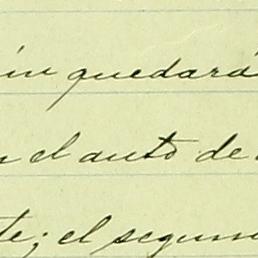 ín quedará
n el auto de
te; el segun